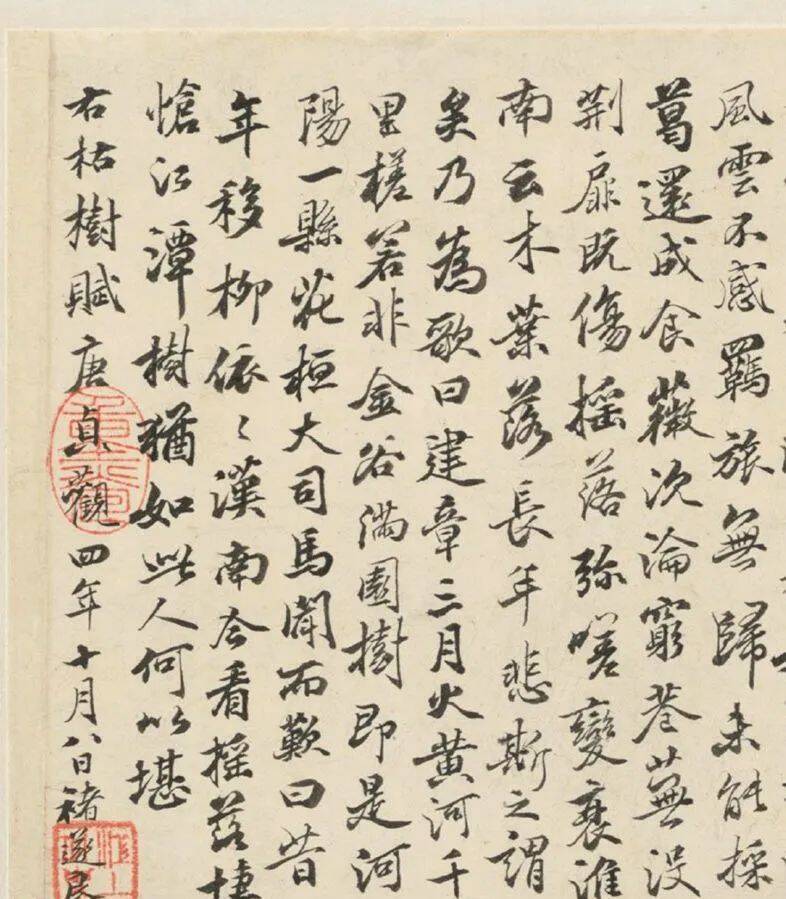 風雲不感羈旅無歸未能採
葛還成食薇沉淪窮巷蕪沒
荆扉既傷搖落弥嗟變衰淮
南云木葉落長年悲斯之謂
矣乃為歌曰建章三月火黄河千
里槎若非金谷滿園樹即是河
陽一縣花桓大司馬聞而歎曰昔
年移柳依〻漢南今看搖落悽
愴江潭樹猶如此人何以堪
右枯樹賦唐貞觀四年十月八日褚遂良